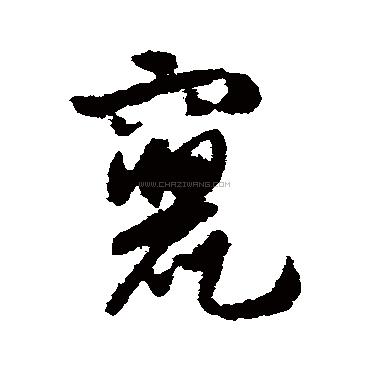 竄
WWW.CHAZIWANG.COM